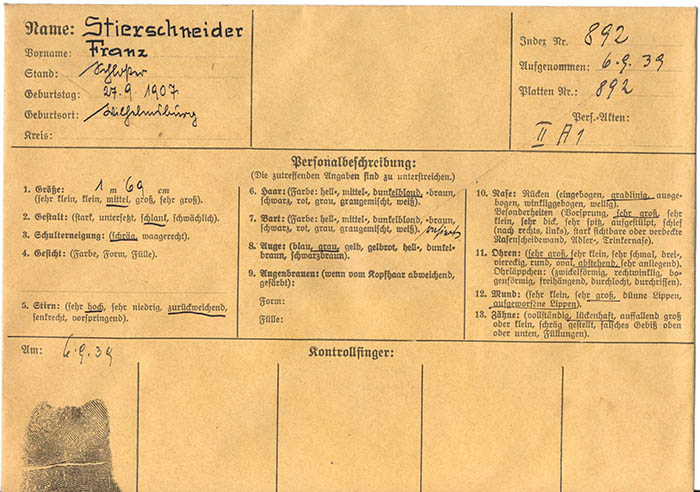 Name: Stierschneider
Vorname: Franz
Stand: Schlosser
Geburtstag: 27.9.1907
Geburtsort: Wilhelmsburg
Kreis:
Index Nr. 892
Aufgenommen: 6.9.39
Platten Nr.: 892
Pers.-Akten:
II A1
Personalbeschreibung:
(Die zutreffenden Angaben sind zu unterstreichen.)
1. Größe: 1 m 69 cm
(sehr klein, klein, mittel, groß, sehr groß).
2. Gestalt: (stark, untersetzt, schlank, schwächlich).
3. Schulterneigung: (schräg, waagerecht).
4. Gesicht: (Farbe, Form, Fülle).
5. Stirn: (sehr hoch, sehr niedrig, zurückweichend,
senkrecht, vorspringend).
6. Haar: (Farbe: hell-, mittel-, dunkelblond, -braun,
schwarz, rot, grau, graugemischt, weiß).
7. Bart: (Farbe: hell-, mittel-, dunkelblond, -braun,
schwarz, rot, grau, graugemischt, weiß).
8. Auge: (blau, grau, gelb, gelbrot, hell-, dunkel-
braun, schwarzbraun).
9. Augenbrauen: (wenn vom Kopfhaar abweichend,
gefärbt):
Form:
Fülle:
10. Nase: Rücken (eingebogen, gradlinig, ausge-
bogen, winkliggebogen, wellig).
Besonderheiten (Vorsprung, sehr groß, sehr
klein, sehr dick, sehr spitz, aufgestülpt, schief
(nach rechts, links), stark sichtbare oder verdeckte
Nasenscheidewand, Adler-, Trinkernase).
11. Ohren: (sehr groß, sehr klein, sehr schmal, drei-,
viereckig, rund, oval, abstehend, sehr anliegend).
Ohrläppchen: (zwickelförmig, rechtwinklig, bo-
genförmig, freihängend, durchlocht, durchrissen).
12. Mund: (sehr klein, sehr groß, dünne Lippen,
aufgeworfene Lippen).
13. Zähne: (vollständig, lückenhaft, auffallend groß
oder klein, schräg gestellt, falsches Gebiß oben
oder unten, Füllungen).
Am: 6.9.39
Kontrollfinger: